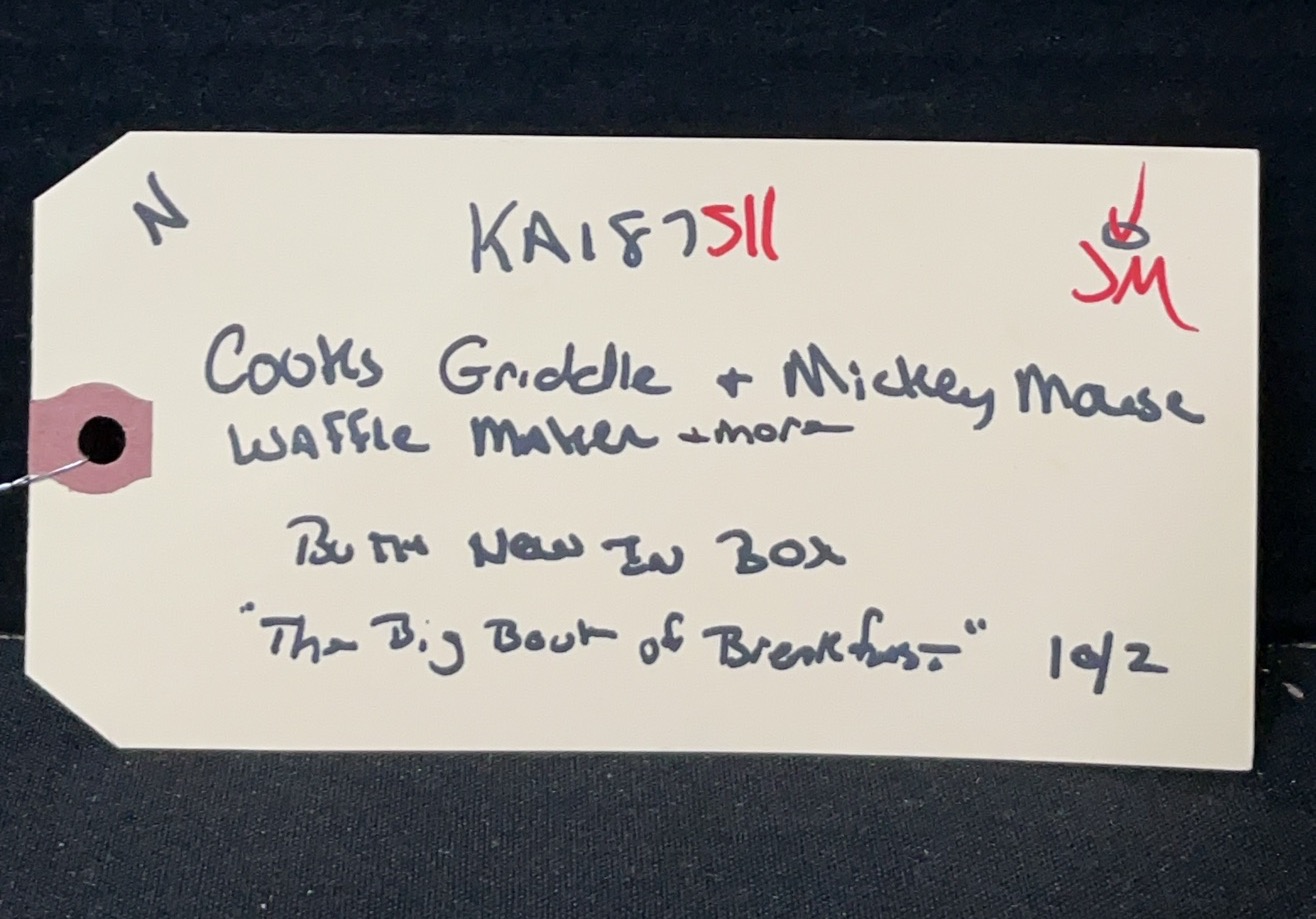 N KA187511 JM
Cooks Griddle + Mickey Mouse
Waffle Maker + more
Both New In Box
"The Big Book of Breakfast" 10/2